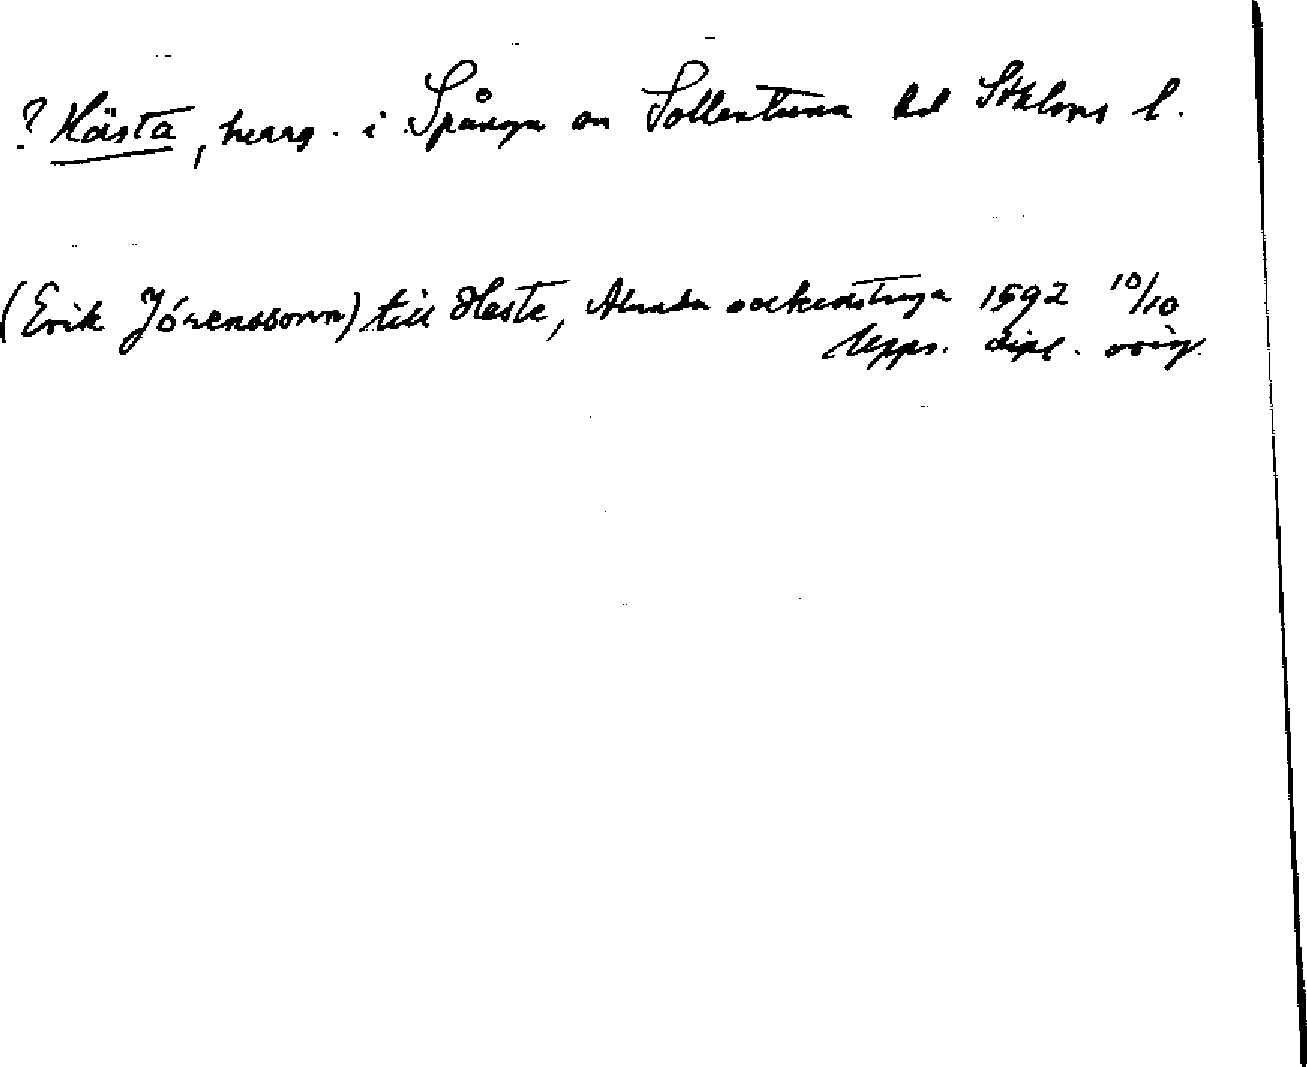 ? Hästa, herrg. i Spånga sn Sollentuna hd Sthlms l.
(Erik Jörenssonn) till Heste, Almda sockenstuga 1592 10/10
Upps. dipl. orig.